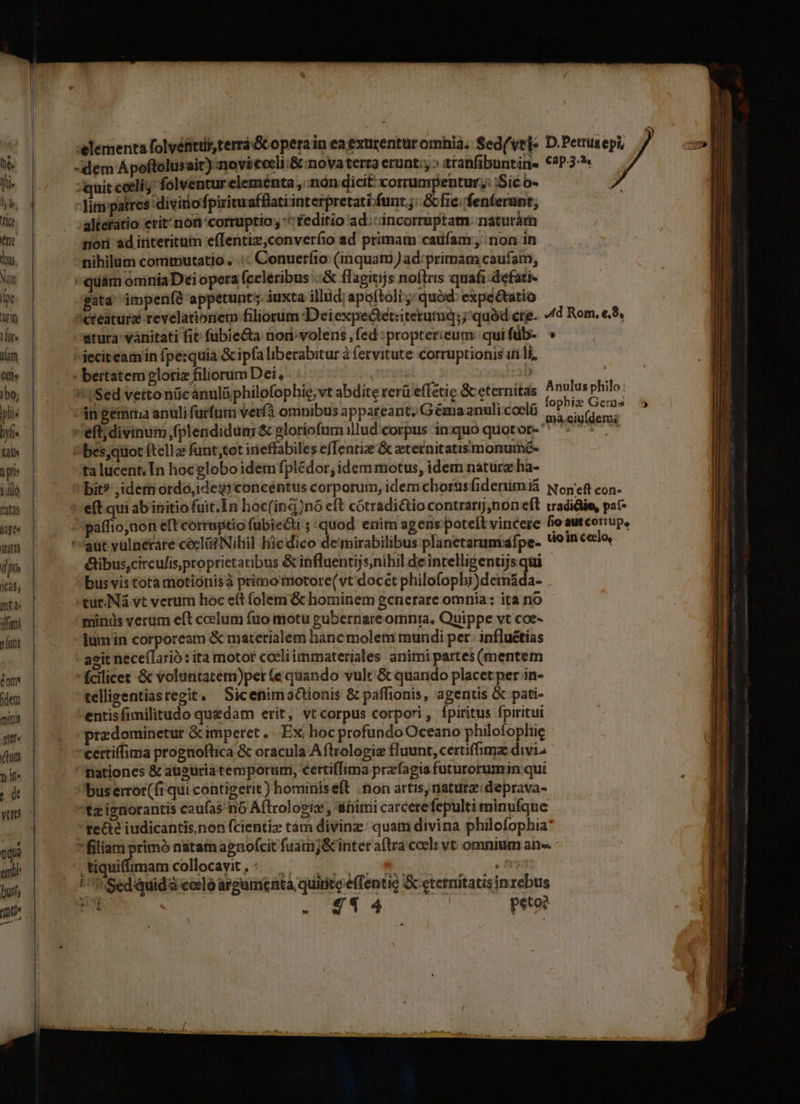 elementa solventur, terra & opera in ea exurentur omnia. Sed (vt i-
dem Apostolus ait) novi coeli & nova terra erunt; transibunt in-
quit coeli, solventur elementa, non dicit corrumpentur; Sic o-
lim patres divino spiritu afflati interpretati sunt; & sic senserunt;
alteratio erit non corruptio, reditio ad incorruptam naturam
non ad interitum essentiæ, conversio ad primam causam, non in
nihilum commutatio. Conuersio (inquam) ad primam causam,
quam omnia Dei opera sceleribus & flagitijs nostris quasi defati-
gata impensè appetunt; iuxta illud apostoli, quòd expectatio
creaturæ revelationem filiorum Dei expectet: iterumq; quòd cre-
atura vanitati sit subiecta non volens, sed propter eum qui sub-
iecit eam in spe: quia & ipsa liberabitur à servitute corruptionis in li-
bertatem gloriæ filiorum Dei.
Sed verto nūc anulū philosophię, vt abditę rerū essētię & eternitas
in gemma anuli sursum versâ omnibus appareant. Gēma anuli coelū
est, divinum, splendidum & gloriosum illud corpus in quo quot or-
bes, quot stellæ sunt, tot ineffabiles essentiæ & æternitatis monumē-
ta lucent. In hoc globo idem splēdor, idem motus, idem naturæ ha-
bit⁹, idem ordo, idemq; concentus corporum, idem chorus siderum iā
est qui ab initio fuit. In hoc (inq̃) nō est cōtradictio contrarij, non est
passio, non est corruptio subiecti; quod enim agens potest vincere
aut vulnerare coelū? Nihil hic dico de mirabilibus planetarum aspe-
ctibus, circulis, proprietatibus & influentijs, nihil de intelligentijs qui
bus vis tota motionis à primo motore (vt docēt philosophi) demāda-
tur. Nā vt verum hoc est solem & hominem generare omnia: ita nō
minùs verum est coelum suo motu gubernare omnia. Quippe vt coe-
lum in corpoream & materialem hanc molem mundi per influētias
agit necessariò: ita motor coeli immateriales animi partes (mentem
scilicet & voluntatem) per se quando vult & quando placet per in-
telligentias regit. Sic enim actionis & passionis, agentis & pati-
entis similitudo quædam erit, vt corpus corpori, spiritus spiritui
prædominetur & imperet. Ex hoc profundo Oceano philosophię
certissima prognostica & oracula Astrologiæ fluunt, certissimæ divi-
nationes & auguria temporum, certissima præsagia futurorum in qui
bus error (si qui contigerit) hominis est non artis, naturæ deprava-
tæ ignorantis causas nō Astrologiæ, animi carcere sepulti minusque
rectè iudicantis, non scientiæ tam divinæ quam divina philosophia
filiam primò natam agnoscit suam, & inter astra coeli vt omnium an-
tiquissimam collocavit,
Sed quid à coelo argumenta quiritę essentię & eternitatis in rebus
¶¶ 4 peto?
D. Petrus epi.
cap. 3.
Ad Rom. c, 8,
Anulus philo
sophiæ Gem-
ma eiusdem;
Non est con-
tradictio, pas-
sio aut corrup-
tio in coelo,